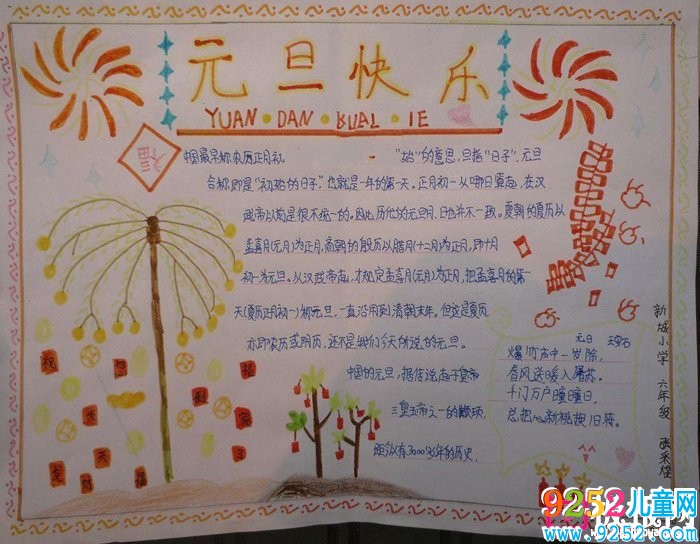 元旦快乐
YUAN DAN KUAL IE
福
中国最早称农历正月初 "始"的意思，旦指"日子"，元旦
合称即是"初始的日子"，也就是一年的第一天。正月初一从哪日算起，在汉
武帝以前是很不统一的。因此，历代的元旦月、日也并不一致。夏朝的夏历以
孟喜月(元月)为正月，商朝的殷历以腊月(十二月)为正月，即十月
初一为元旦。从汉武帝起，才规定孟喜月(元月)为正月，把孟喜月的第一
天(夏历正月初一)称元旦，一直沿用到清朝末年。但这是夏历
亦即农历或阴历，还不是我们今天所说的元旦。
中国的元旦，据传说起于皇帝
三皇五帝之一的颛顼，
距纵有3000多年的历史，
元日 王安石
爆竹声中一岁除，
春风送暖入屠苏。
千门万户瞳瞳日，
总把新桃换旧符。
新城小学 六年级
9252儿童网
www.9252.com